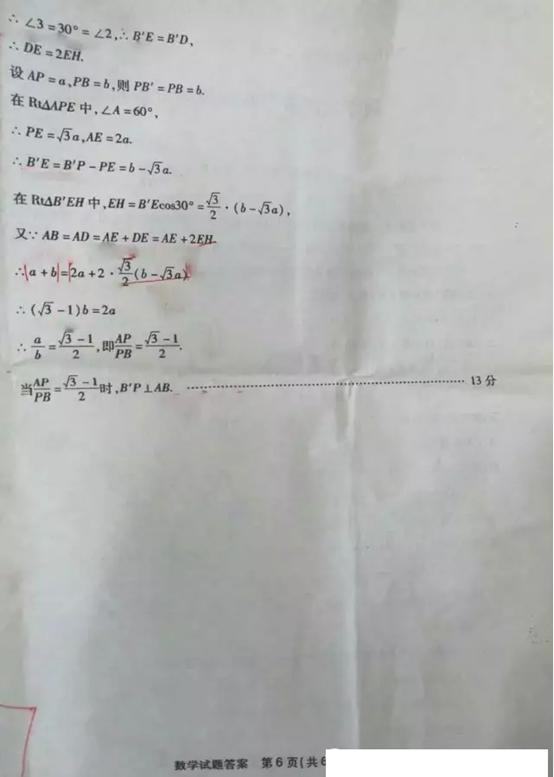 ∴ ∠3=30°=∠2,∴ B'E=B'D,
∴ DE=2EH.
设 AP=a,PB=b,则 PB'=PB=b.
在 Rt△APE 中,∠A=60°,
∴ PE=√3a,AE=2a.
∴ B'E=B'P-PE=b-√3a.
在 Rt△B'EH 中,EH=B'Ecos30°=√3/2·(b-√3a),
又∵ AB=AD=AE+DE=AE+2EH.
∴ a+b=2a+2·√3/2(b-√3a)
∴ (√3-1)b=2a
∴ a/b=(√3-1)/2,即AP/PB=(√3-1)/2.
当AP/PB=(√3-1)/2时,B'P⊥AB. ………………………… 13分
数学试题答案 第6页(共6